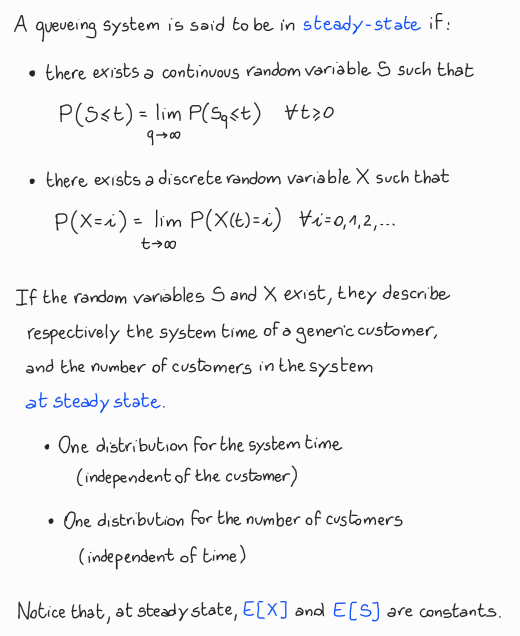 A queueing system is said to be in steady-state if:
• there exists a continuous random variable S such that
P(S≤t) = lim P(Sq≤t) ∀t≥0
q→∞
• there exists a discrete random variable X such that
P(X=i) = lim P(X(t)=i) ∀i=0,1,2,...
t→∞
If the random variables S and X exist, they describe
respectively the system time of a generic customer,
and the number of customers in the system
at steady state.
• One distribution for the system time
(independent of the customer)
• One distribution for the number of customers
(independent of time)
Notice that, at steady state, E[X] and E[S] are constants.